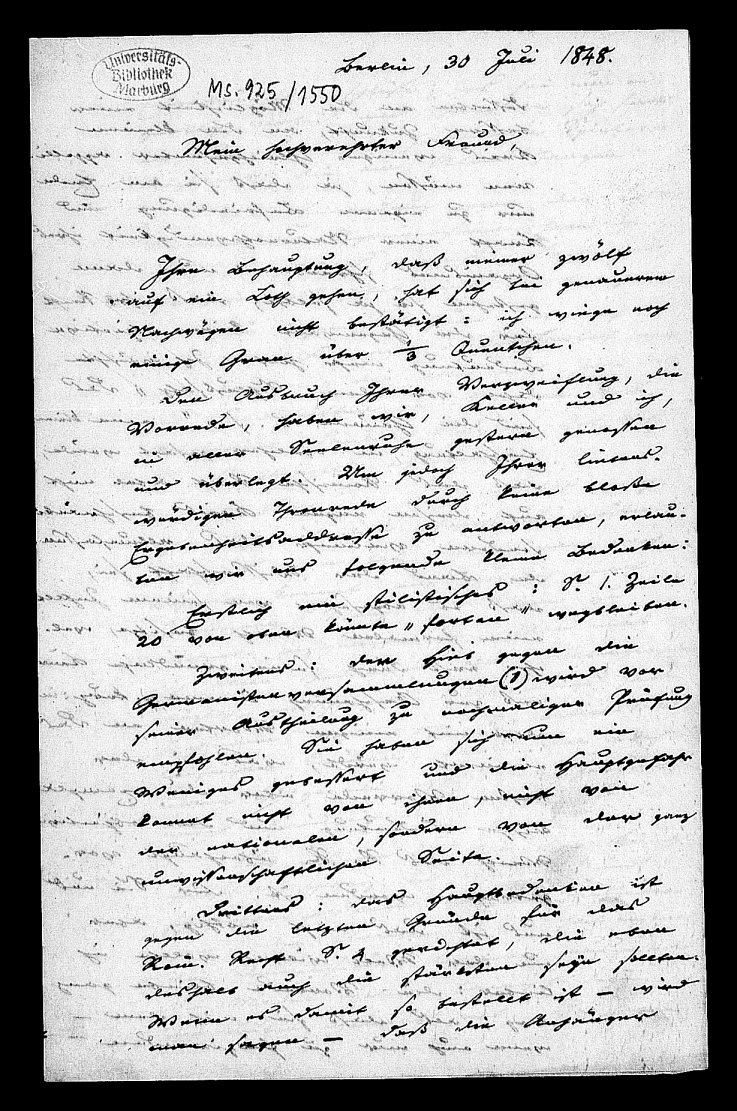 Universitäts-
Bibliothek
Marburg
Ms. 925/1550
Berlin, 30 Juli 1848.
Mein hochverehrter Freund,
Ihre Behauptung, daß meiner zwölf
auf ein Loth gehen, hat sich bei genauerem
Nachwägen nicht bestätigt: ich wiege noch
einige Gran über 1/3 Quentchen.
Den Ausbruch Ihrer Verzweiflung, die
Vorrede, haben wir, Keller und ich,
in aller Seelenruhe gestern genossen
und überlegt. Um jedoch Ihrer liebens-
würdigen Thronrede durch keine bloße
Ergebenheitsaddresse zu antworten, erlau-
ben wir uns folgende kleine Bedenken:
Erstlich ein stilistisches: S. 1. Zeile
20 von oben könnte „ "wegbleiben.
Zweitens: der Hieb gegen die
Germanistenversammlungen (1) wird vor
seiner Austheilung zu nochmaliger Prüfung
empfohlen. Sie haben sich nun ein
Weniges gebessert und die Hauptgefahr
kommt nicht von ihnen, nicht von
der nationalen, sondern von der ganz
unwissenschaftlichen Seite.
Drittens: das Hauptbedenken ist
gegen die letzten Gründe für das
Röm. Recht S. 4 gerichtet, die eben
deshalb auch die stärksten seyn sollten.
Wenn es damit so bestellt ist – wird
man sagen – daß die Anhänger